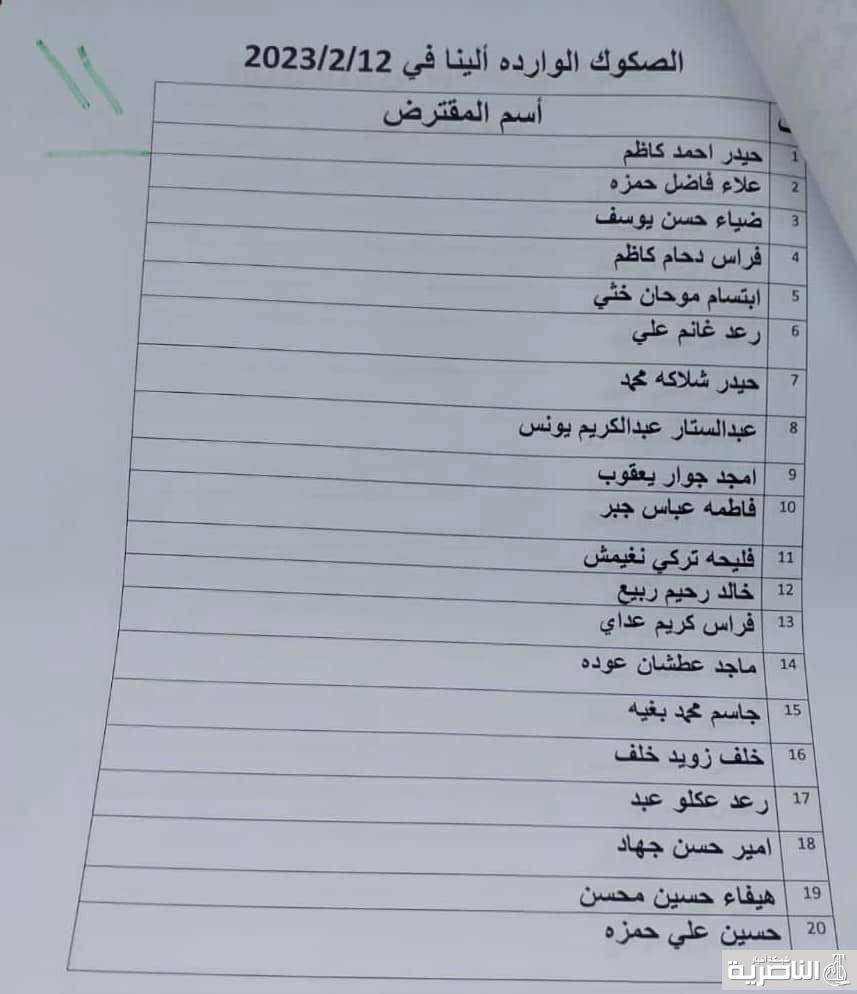 الصكوك الوارده ألينا في 2023/2/12
أسم المقترض
1 حيدر احمد كاظم
2 علاء فاضل حمزه
3 ضياء حسن يوسف
4 فراس دحام كاظم
5 ابتسام موحان خثي
6 رعد غانم علي
7 حيدر شلاكه محمد
8 عبدالستار عبدالكريم يونس
9 امجد جوار يعقوب
10 فاطمه عباس جبر
11 فليحه تركي نغيمش
12 خالد رحيم ربيع
13 فراس كريم عداي
14 ماجد عطشان عوده
15 جاسم محمد بغيه
16 خلف زويد خلف
17 رعد عكلو عبد
18 امير حسن جهاد
19 هيفاء حسين محسن
20 حسين علي حمزه
شبكة أخبار
الناصرية